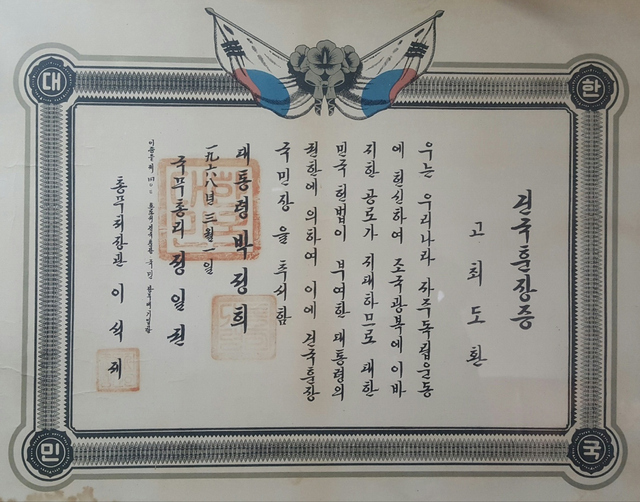 대한민국
건국훈장증
고 최도환
우는 우리나라 자주독립운동
에 헌신하여 조국광복에 이바
지한 공로가 지대하므로 대한
민국 헌법이 부여한 대통령의
권한에 의하여 이에 건국훈장
국민장을 추서함
대통령 박정희
一九六八년 三월 一일
국무총리 정일권
총무처장관 이석제